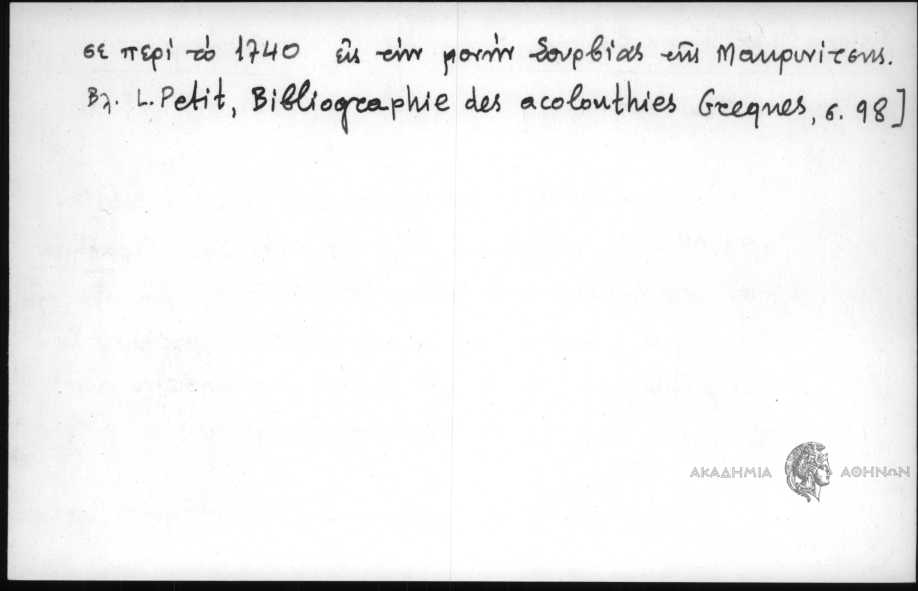 σε περί τό 1740 εἰς τήν μονήν Σουρβίας τῆς Μακρυνίτσης.
Βλ. L. Petit, Bibliographie des acolouthies Grecques, σ. 98]
ΑΚΑΔΗΜΙΑ ΑΘΗΝΩΝ